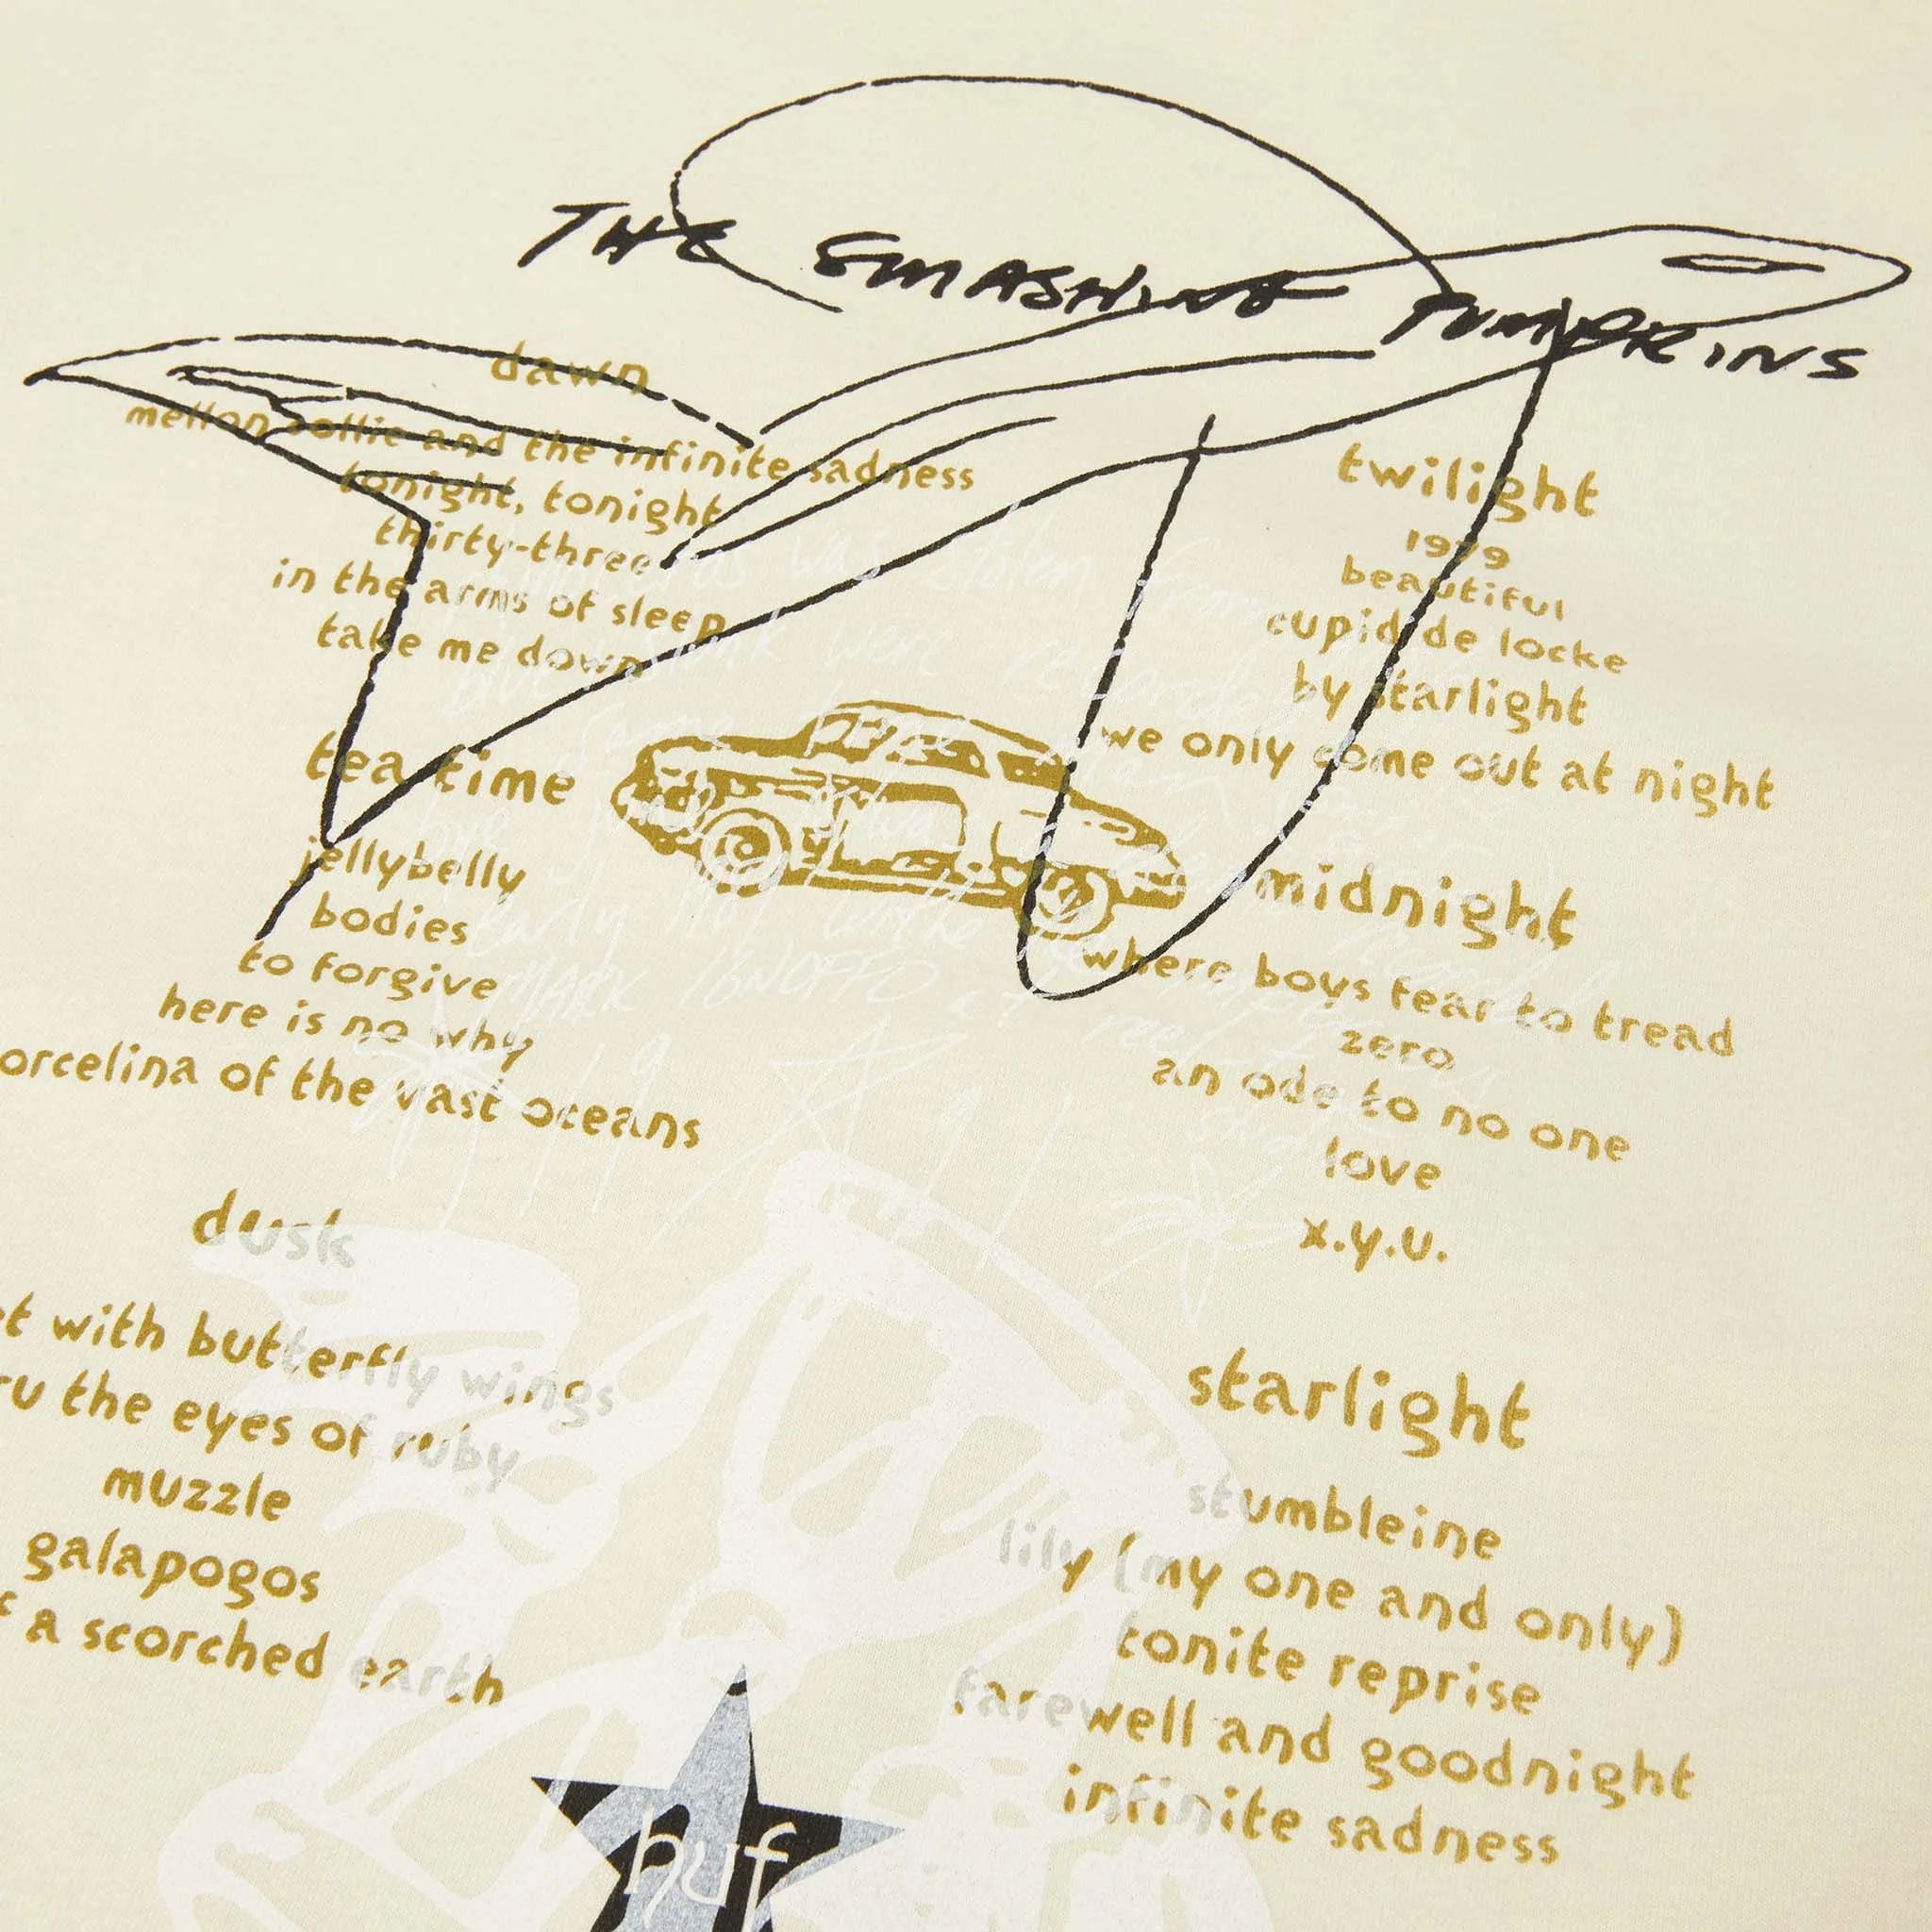 THE SMASHING PUMPKINS
dawn
mellon collie and the infinite sadness
tonight, tonight
thirty-three
in the arms of sleep
take me down
tea time
jellybelly
bodies
to forgive
here is no why
orcelina of the vast oceans
dusk
et with butterfly wings
ru the eyes of ruby
muzzle
galapogos
f a scorched earth
twilight
1979
beautiful
cupid de locke
by starlight
we only come out at night
midnight
where boys fear to tread
zero
an ode to no one
love
x.y.u.
starlight
stumbleine
lily (my one and only)
tonite reprise
farewell and goodnight
infinite sadness
was stolen from
early
MARK at
huf